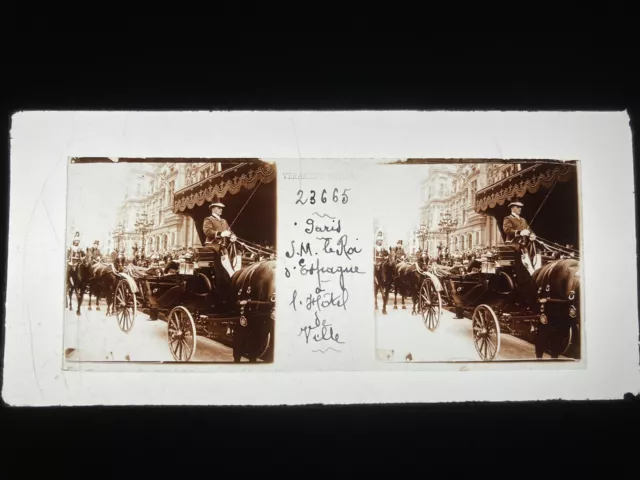 23665
Paris
S.M. le Roi
d'Espagne
à
l'Hôtel
de
Ville